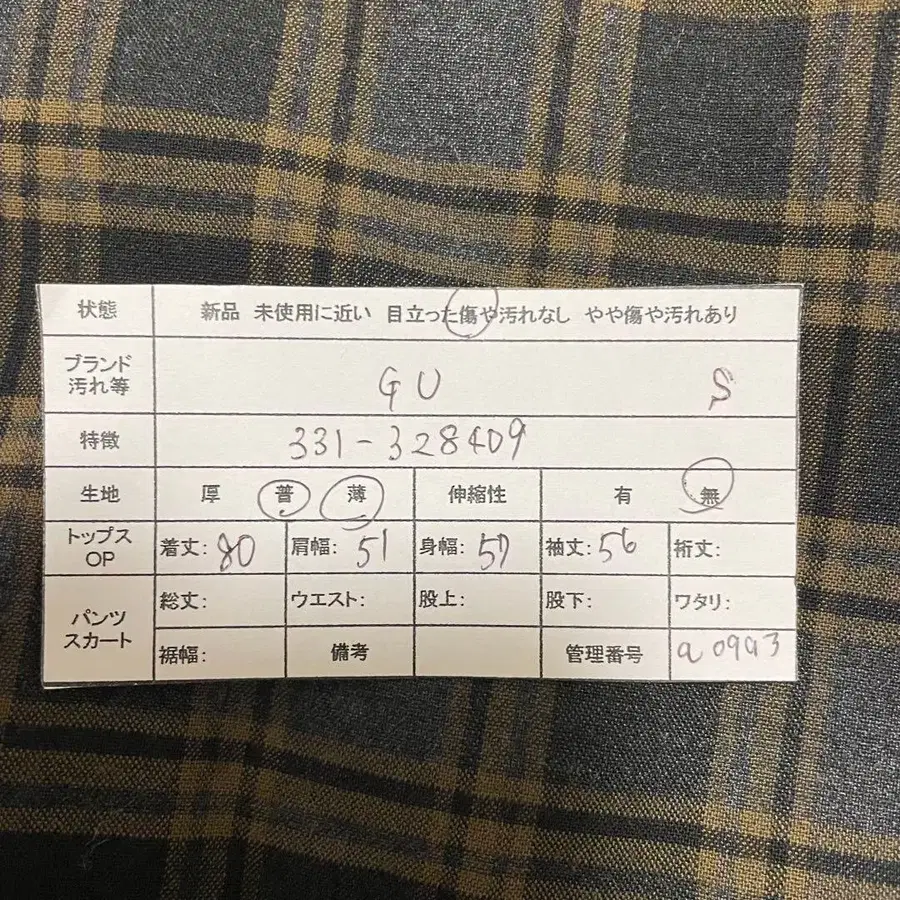 状態 新品 未使用に近い 目立った傷や汚れなし やや傷や汚れあり
ブランド
汚れ等 GU S
特徴 331-328409
生地 厚 普 薄 伸縮性 有 無
トップス
OP 着丈: 80 肩幅: 51 身幅: 57 袖丈: 56 裄丈:
パンツ
スカート 総丈: ウエスト: 股上: 股下: ワタリ:
裾幅: 備考 管理番号